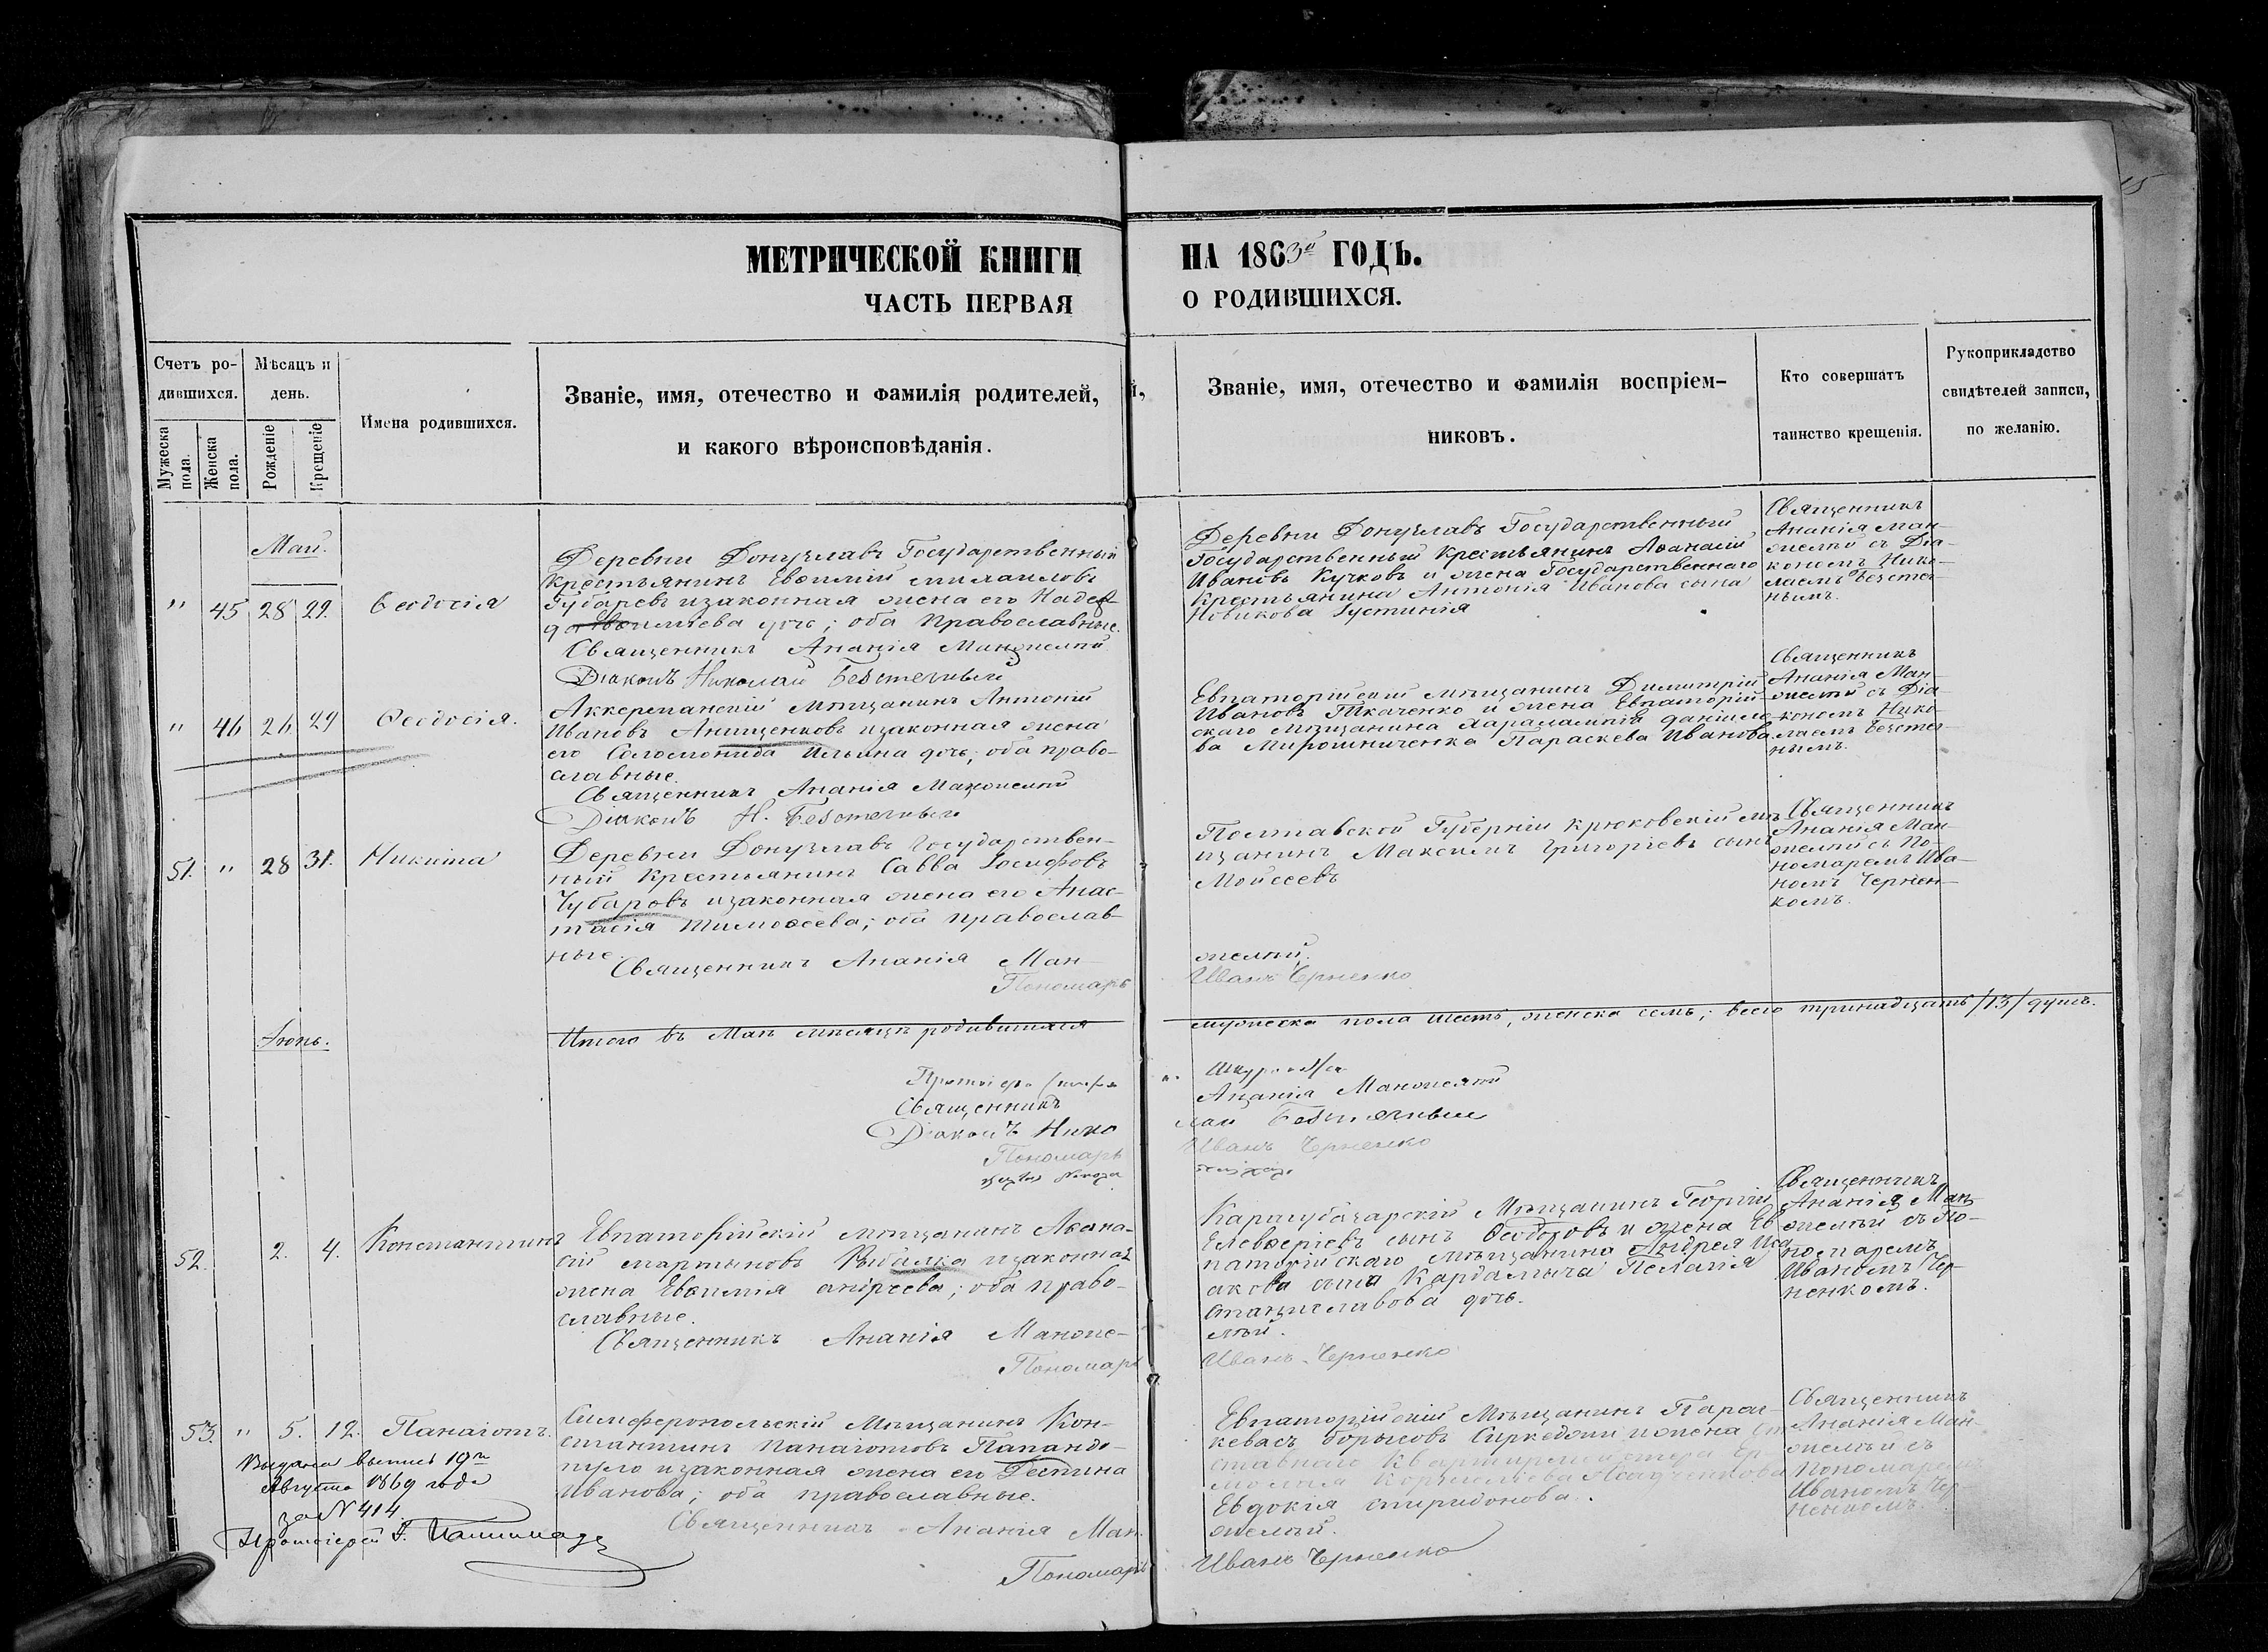 15
МЕТРИЧЕСКОЙ КНИГИ НА 1863й ГОДЪ.
ЧАСТЬ ПЕРВАЯ О РОДИВШИХСЯ.
Счетъ родившихся.
Мужеска пола.
Женска пола.
Мѣсяцъ и день.
Рожденіе
Крещеніе
Имена родившихся.
Званіе, имя, отечество и фамилія родителей,
и какого вѣроисповѣданія.
Званіе, имя, отечество и фамилія воспріем-
никовъ.
Кто совершатъ
таинство крещенія.
Рукоприкладство
свидѣтелей записи,
по желанію.
Май.
" 45 28 29. Ѳеодосія
Деревни Донузлавъ Государственный
Крестьянинъ Евѳимій Михаиловъ
Губаревъ изаконная жена его Надеж-
да
дочь; оба Православные.
Священникъ Ананія Манжелѣй
Діаконъ Николай Безстечный
Деревни Донузлавъ Государственный
Государственный Крестьянинъ Аѳанасій
Ивановъ Кучковъ и жена Государственнаго
Крестьянина Антонія Иванова сына
Новикова Іустинія
Священникъ
Ананія Ман-
желѣй съ Діа-
кономъ Нико-
лаемъ Безстеч-
нымъ.
" 46 26 29 Ѳеодосія.
Аккерманскій Мѣщанинъ Антоній
Ивановъ Анищенковъ изаконная жена
его Соломонида Ильина дочь; оба право-
славные.
Священникъ Ананія Манжелѣй
Діаконъ Н. Безстечный
Евпаторійскій мѣщанинъ Димитрій
Ивановъ Ткаченко и жена Евпаторій-
скаго Мѣщанина Харалампія Даніило-
ва Мирошниченка Параскева Иванова.
Священникъ
Ананія Ман-
желѣй съ Діа-
кономъ Нико-
лаемъ Безстеч-
нымъ.
51. " 28 31. Никита
Деревни Донузлавъ Государствен-
ный Крестьянинъ Савва Іосифовъ
Чубаровъ изаконная жена его Анас-
тасія Тимоѳеева; оба православ-
ные.
Священникъ Ананія Ман-
желѣй.
Пономарь Иванъ Черненко
Полтавской Губерніи Крюковскій мѣ-
щанинъ Максимъ Григорьевъ сынъ
Моисеевъ
Священникъ
Ананія Ман-
желѣй съ По-
номаремъ Ива-
номъ Чернен-
комъ.
Итого въ Маѣ мѣсяцѣ родившихся мужеска пола шесть, женска семь; всего тринадцать /13/ душъ.
Іюнь.
Священникъ Ананія Манжелѣй
Діаконъ Николай Безстечный
Пономарь Иванъ Черненко
52. 2. 4. Константинъ
Евпаторійскій мѣщанинъ Аѳана-
сій Мартыновъ Рыбалка изаконная
жена Евѳимія Андреева; оба право-
славные.
Священникъ Ананія Манже-
лѣй.
Пономарь Иванъ Черненко
Карасубазарскій Мѣщанинъ Георгій
Елевѳеріевъ сынъ Ѳеодоровъ и жена Ев-
паторійскаго мѣщанина Андрея Иса-
акова сына Кардамыча Пелагія
Станиславова дочь.
Священникъ
Ананія Ман-
желѣй съ По-
номаремъ
Иваномъ Чер-
ненкомъ.
53. " 5. 12. Панаіотъ.
Симферопольскій Мѣщанинъ Кон-
стантинъ Панаіотовъ Папандо-
пуло изаконная жена его Деспина
Иванова; оба православные.
Священникъ Ананія Ман-
желѣй.
Пономарь Иванъ Черненко
Евпаторійскій Мѣщанинъ Парас-
кевасъ Борисовъ Сиркедони и жена
Евдокія Спиридонова.
Священникъ
Ананія Ман-
желѣй съ
Пономаремъ
Иваномъ Чер-
ненкомъ.
Выдана выпись 19го
Августа 1869 года
за N 414.
Протоіерей